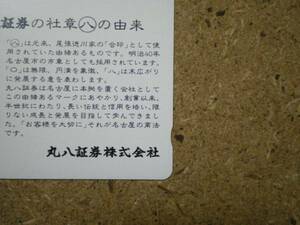 証券の社章㊇の由来
「㊇」は元来、尾張徳川家の「合印」として使
用されていた由緒あるものです。明治40年
名古屋市の市章としても採用されています。
「○」は無限、円満を象徴、「八」は末広がり
に発展する意を表わします。
丸八証券は名古屋に本拠を置く会社として
この由緒あるマークにあやかり、創業以来、
半世紀にわたり、長い伝統と信用を培い、限
りない成長と発展を目指して歩んできました。
「お客様を大切に」それが名古屋の商法
です。
丸八証券株式会社